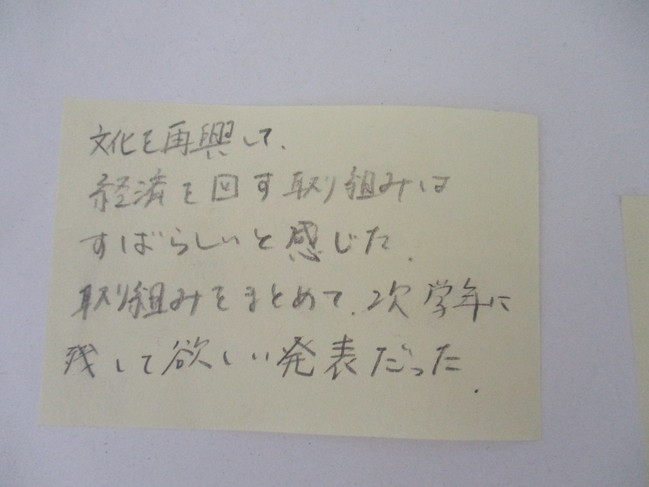 文化を再興して、
経済を回す取り組みは
すばらしいと感じた。
取り組みをまとめて、次学年に
残して欲しい発表だった。